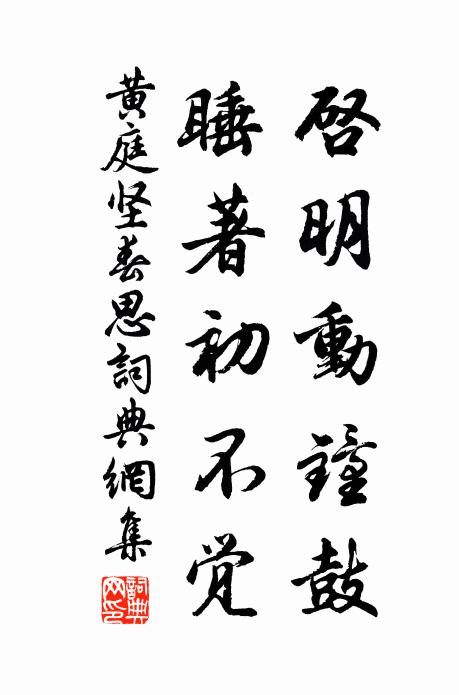 啓明動鐘鼓
睡著初不觉
黄庭坚春思詞典網集
詞典網印